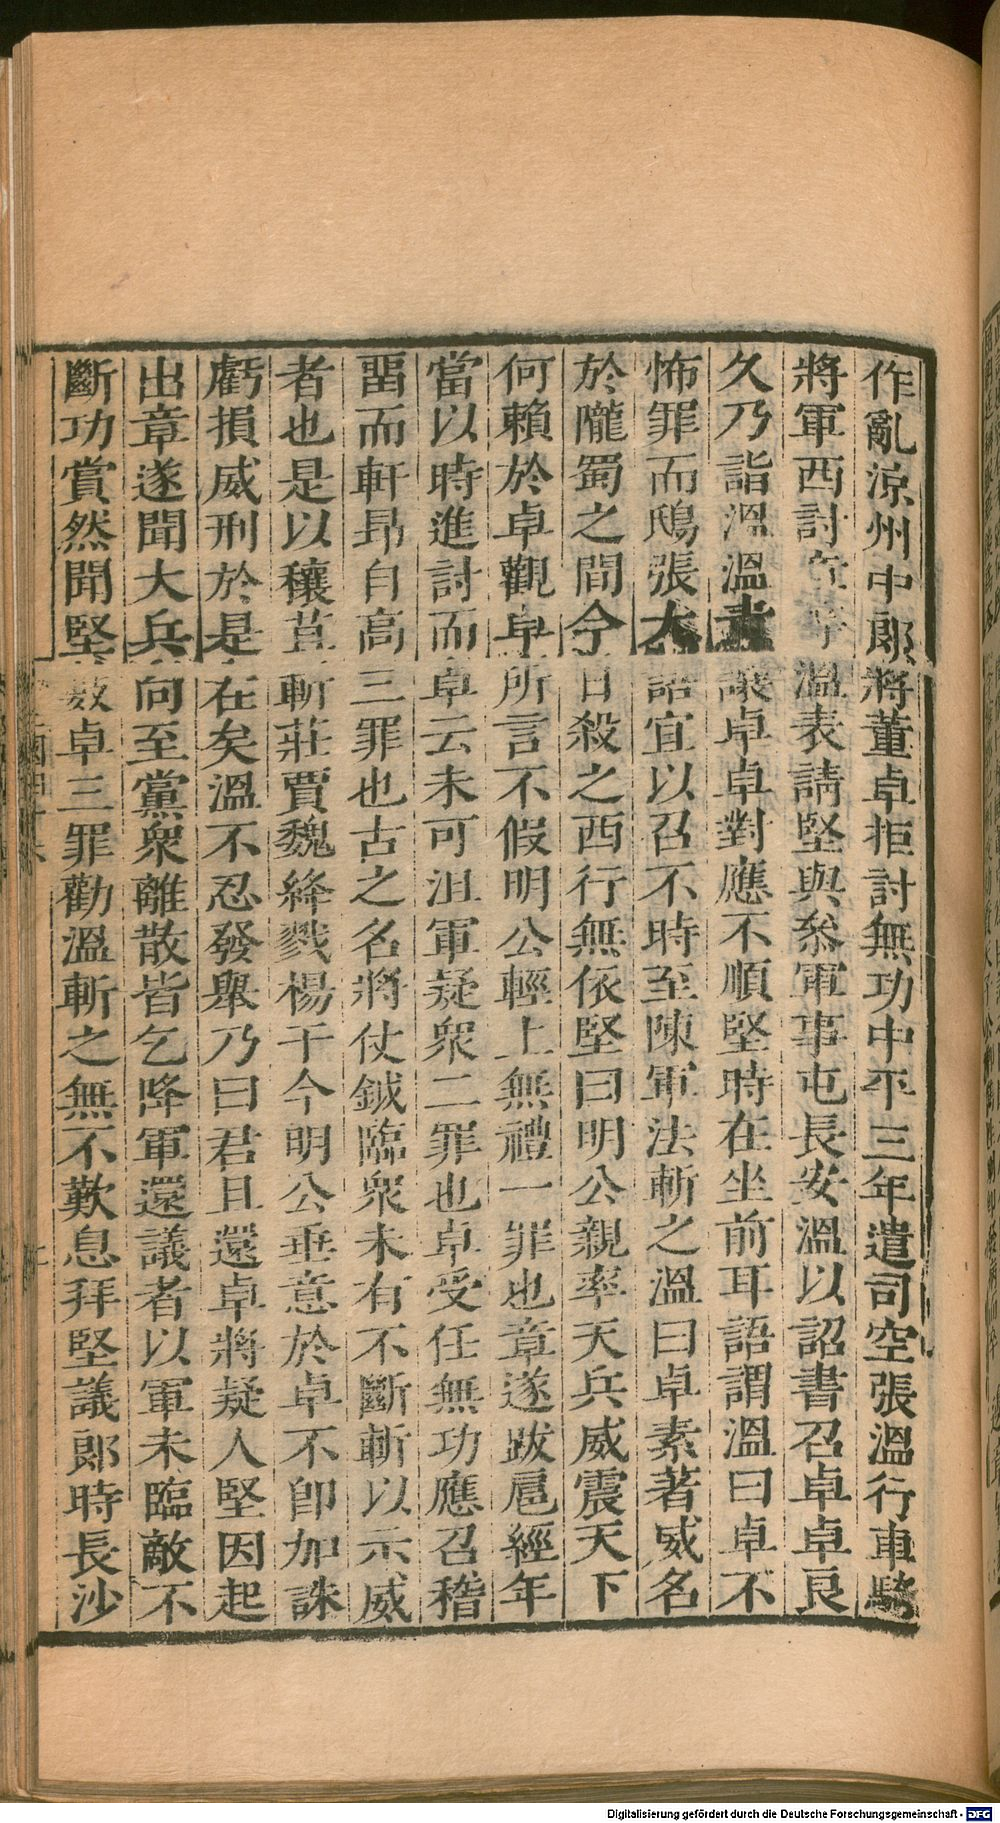 作亂涼州中郎將董卓拒討無功中平三年遣司空張溫行車騎
將軍西討章等溫表請堅與參軍事屯長安溫以詔書召卓卓良
久乃詣溫溫責讓卓卓對應不順堅時在坐前耳語謂溫曰卓不
怖罪而鴟張大語宜以召不時至陳軍法斬之溫曰卓素著威名
於隴蜀之間今日殺之西行無依堅曰明公親率天兵威震天下
何賴於卓觀卓所言不假明公輕上無禮一罪也章遂跋扈經年
當以時進討而卓云未可沮軍疑衆二罪也卓受任無功應召稽
畱而軒昻自高三罪也古之名將仗鉞臨衆未有不斷斬以示威
者也是以穰苴斬莊賈魏絳戮楊干今明公垂意於卓不卽加誅
虧損威刑於是在矣溫不忍發舉乃曰君且還卓將疑人堅因起
出章遂聞大兵向至黨衆離散皆乞降軍還議者以軍未臨敵不
斷功賞然聞堅數卓三罪勸溫斬之無不歎息拜堅議郎時長沙
Digitalisierung gefördert durch die Deutsche Forschungsgemeinschaft - DFG